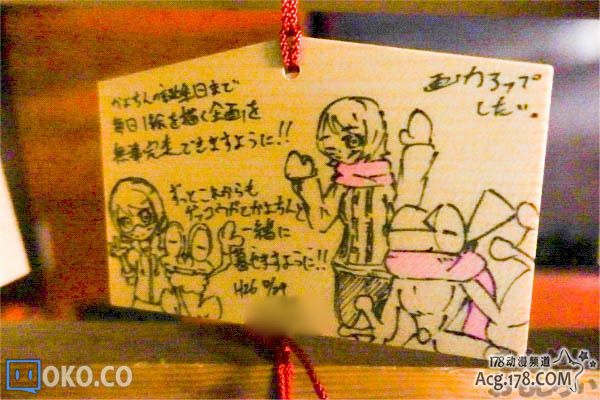 かよちんの誕生日まで
毎日1絵を描く企画を
無事完走できますように!!
画力アップ
したい。
ずっとこれからも
ゲッコウガとかよちんと
一緒に
暮せますように!!
OKO.CO
178动漫频道
Acg.178.COM